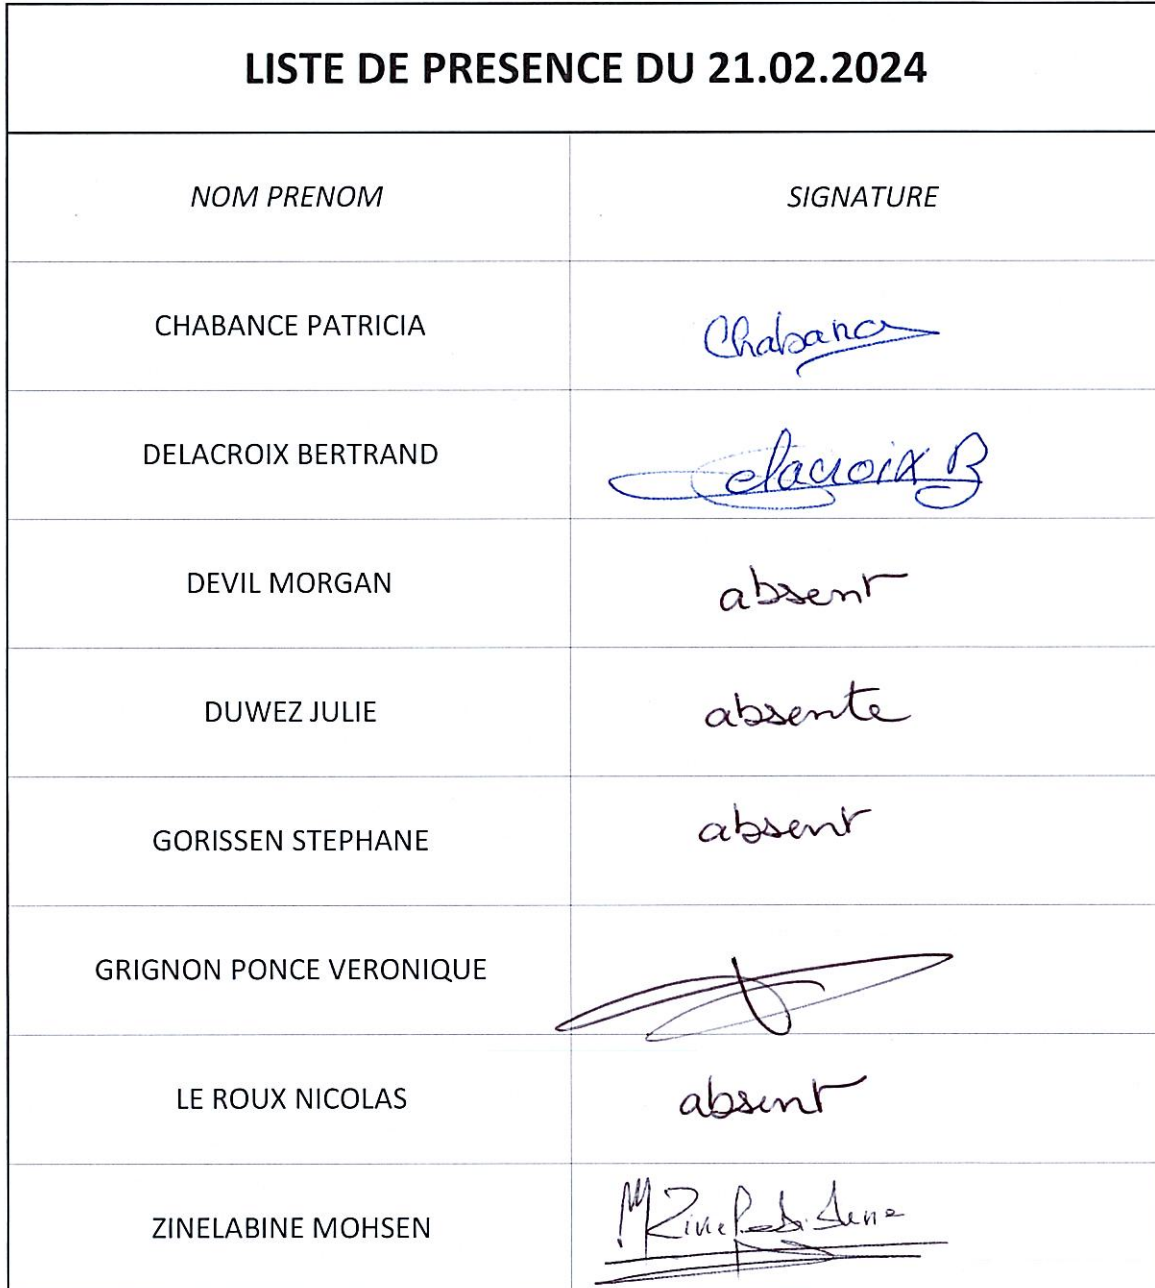 LISTE DE PRESENCE DU 21.02.2024
NOM PRENOM SIGNATURE
CHABANCE PATRICIA Chabance
DELACROIX BERTRAND Delacroix B
DEVIL MORGAN absent
DUWEZ JULIE absente
GORISSEN STEPHANE absent
GRIGNON PONCE VERONIQUE
LE ROUX NICOLAS absent
ZINELABINE MOHSEN